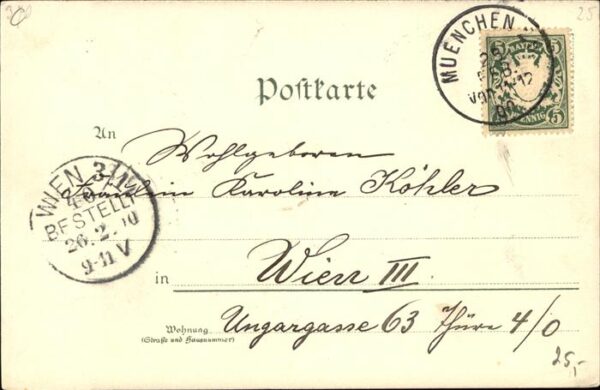 MUENCHEN
25
FEB.
11-12
00
5 BAYERN 5
5 PFENNIG 5
Postkarte
An
Wohlgeboren
Fräulein Karoline Köhler
WIEN 3/1
BESTELLT
26.2.00
9-11 V
in Wien III.
Wohnung
(Straße und Hausnummer)
Ungargasse 63 Thüre 4/0
25,-
25